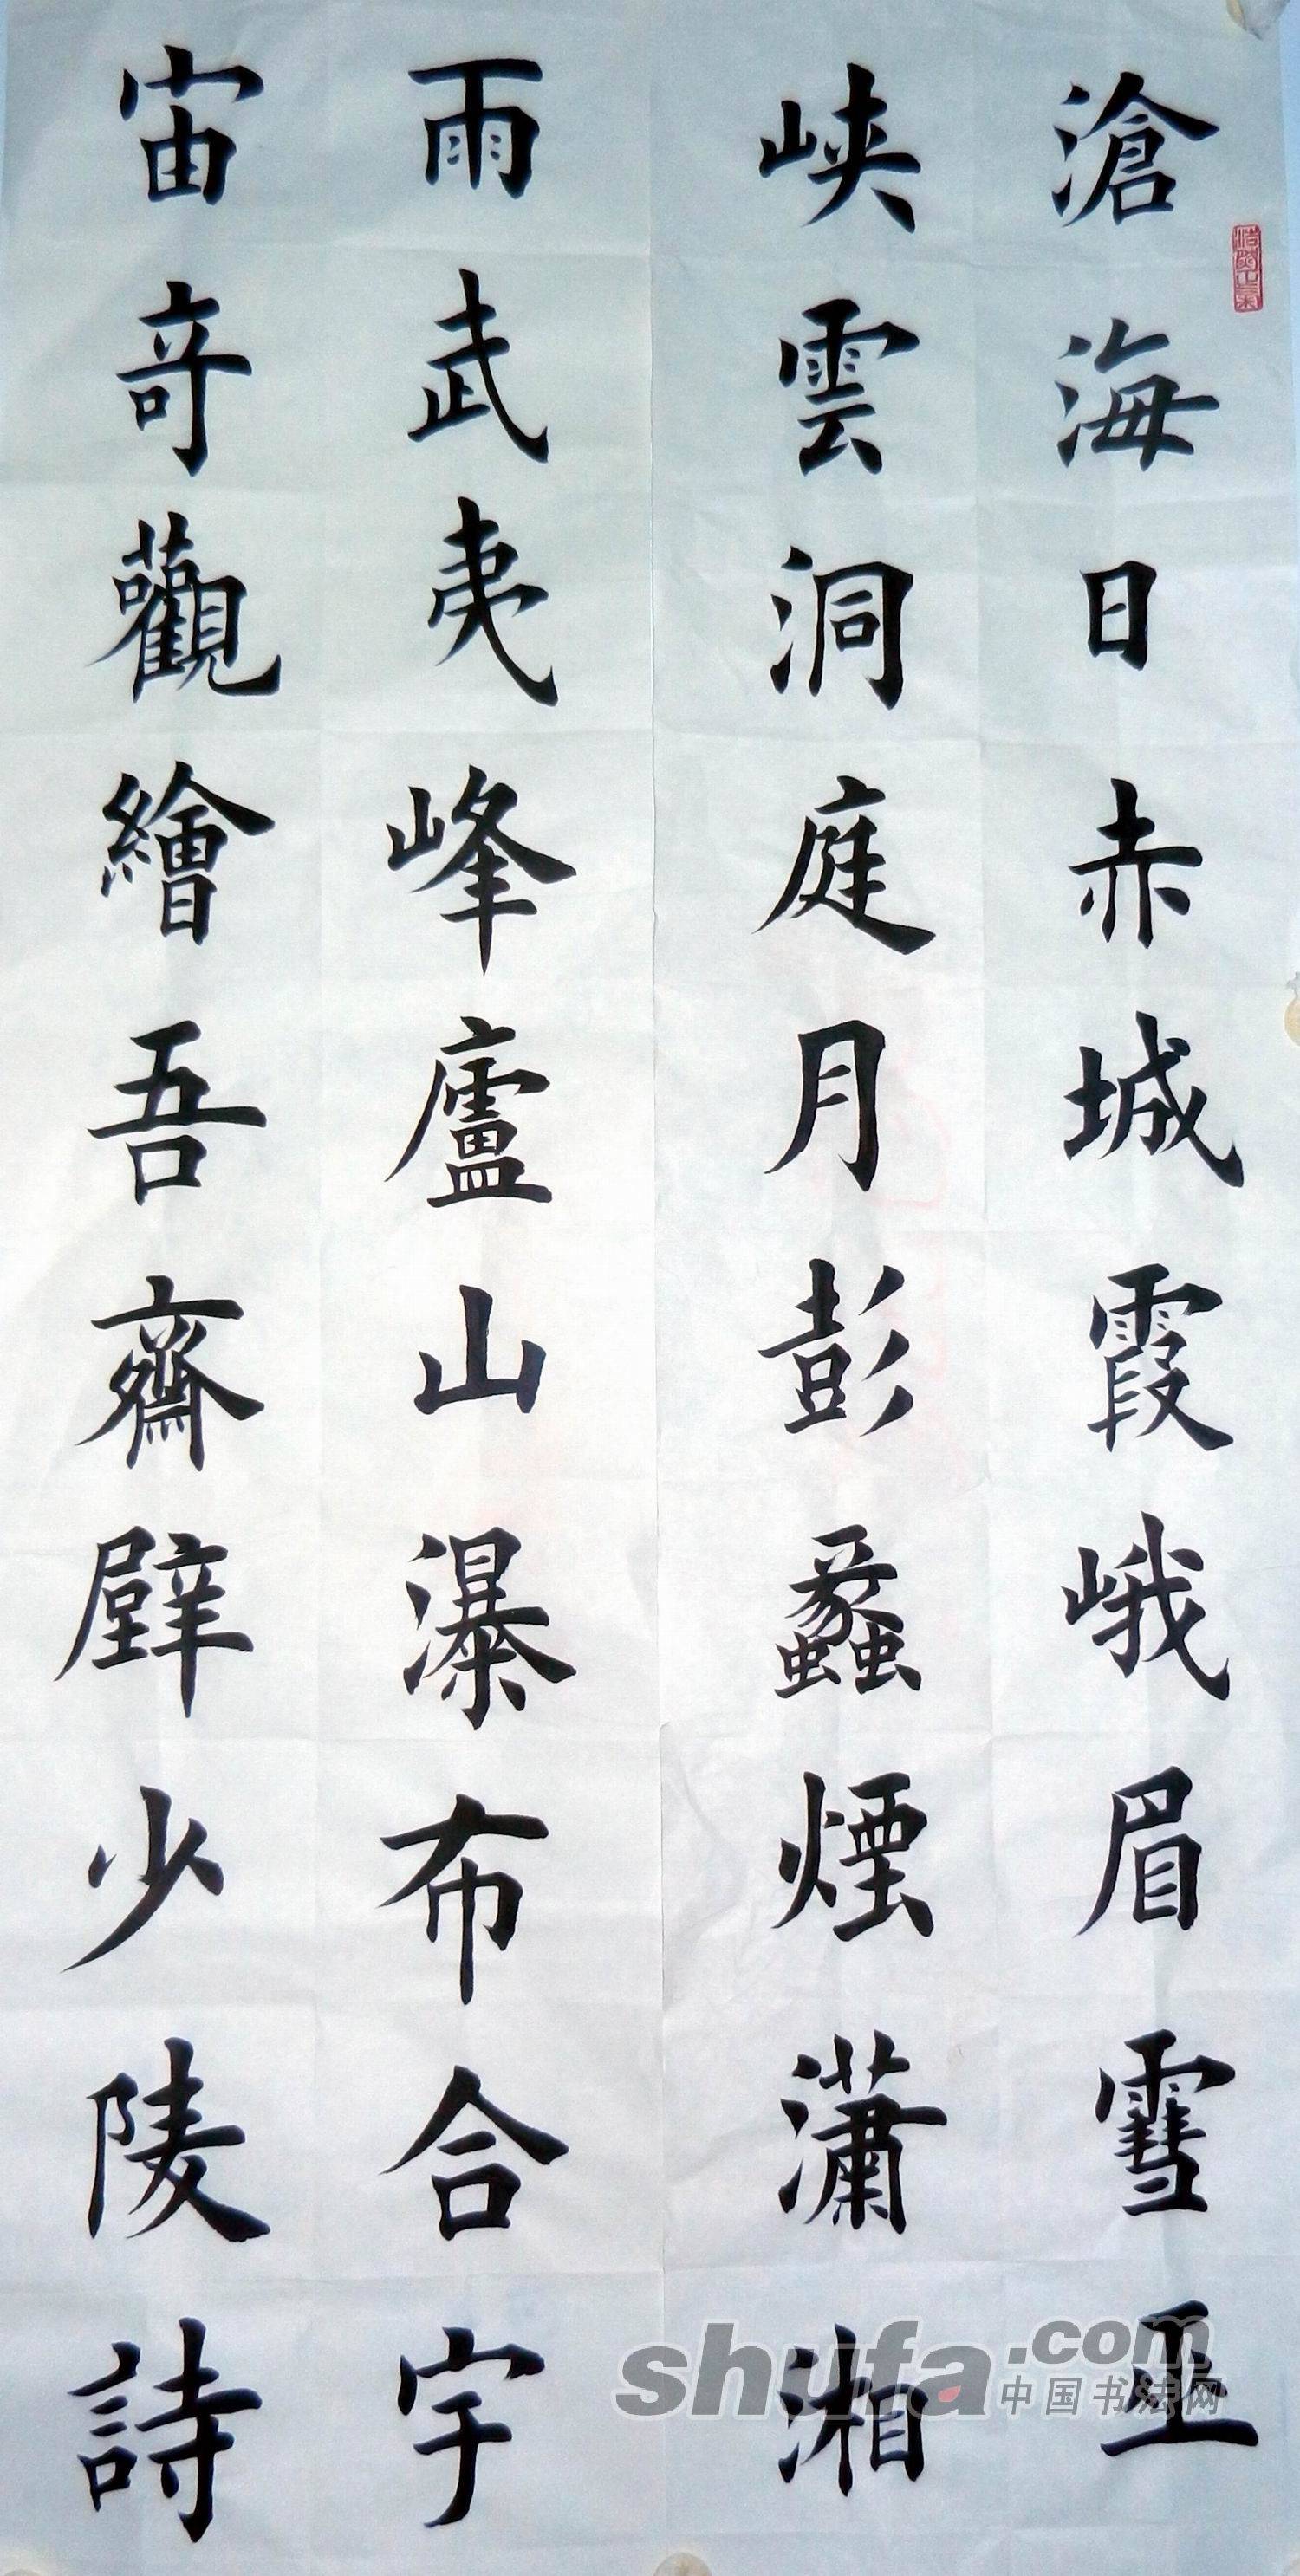 滄海日赤城霞峨眉雪巫
峽雲洞庭月彭蠡煙瀟湘
雨武夷峰廬山瀑布合宇
宙奇觀繪吾齋壁少陵詩
shufa.com
中国书法网